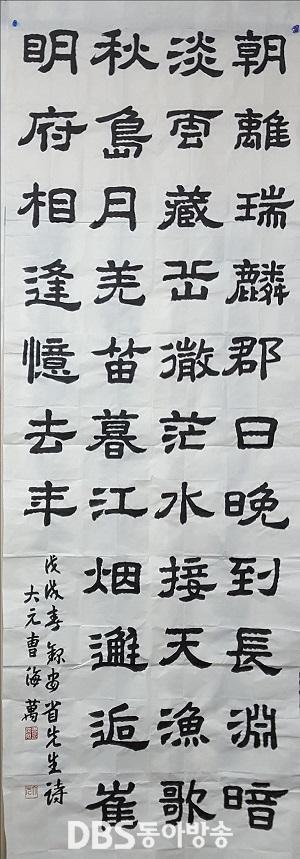 朝離瑞麟郡日晩到長淵暗
淡雲藏岳微茫水接天漁歌
秋島月羌笛暮江烟邂逅崔
明府相逢憶去年
戊戌春錄安省先生詩
大元曹海萬
DBS동아방송